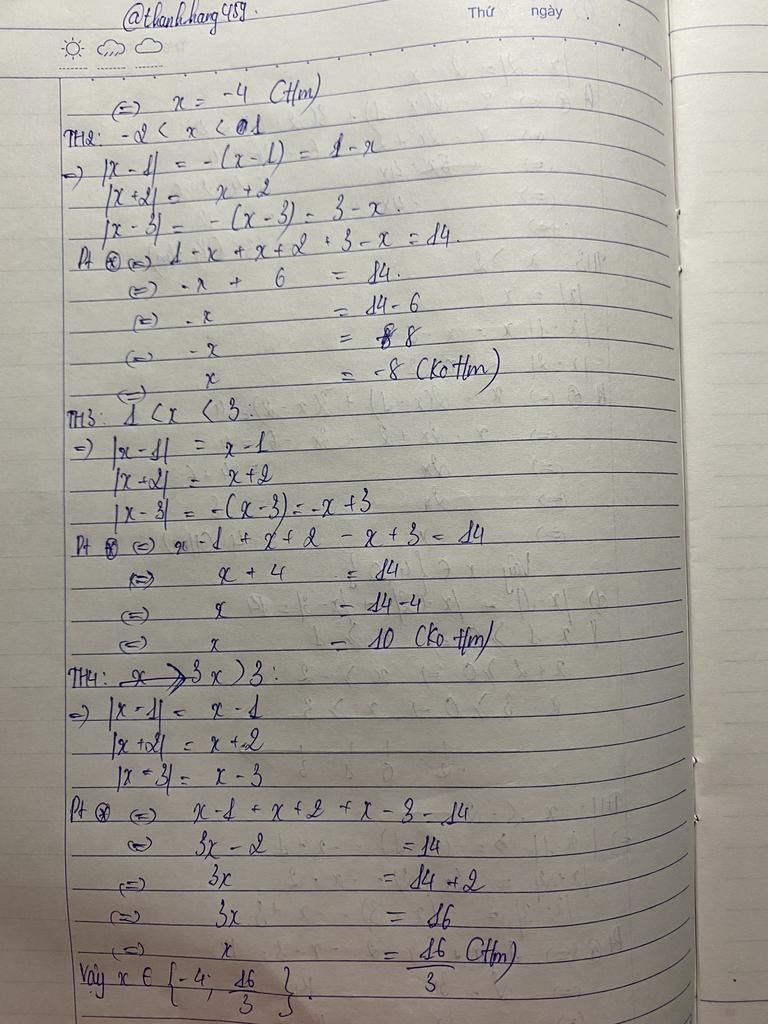 @thanhhang489.
Thứ ngày
(=) x = -4 (t/m)
TH2: -2 < x < 1
=) |x-1| = -(x-1) = 1-x
|x+2| = x+2
|x-3| = -(x-3) = 3-x.
Pt (*) (=) 1-x + x+2 + 3-x = 14.
(=) -x + 6 = 14.
(=) -x = 14-6
(=) -x = 8
(=) x = -8 (Ko t/m)
TH3: 1 < x < 3:
=) |x-1| = x-1
|x+2| = x+2
|x-3| = -(x-3) = -x+3
Pt (*) (=) x-1 + x+2 - x+3 = 14
(=) x+4 = 14
(=) x = 14-4
(=) x = 10 (Ko t/m)
TH4: x > 3:
=) |x-1| = x-1
|x+2| = x+2
|x-3| = x-3
Pt (*) (=) x-1 + x+2 + x-3 = 14
(=) 3x-2 = 14
(=) 3x = 14+2
(=) 3x = 16
(=) x = 16/3 (t/m)
Vậy x ∈ {-4; 16/3}.